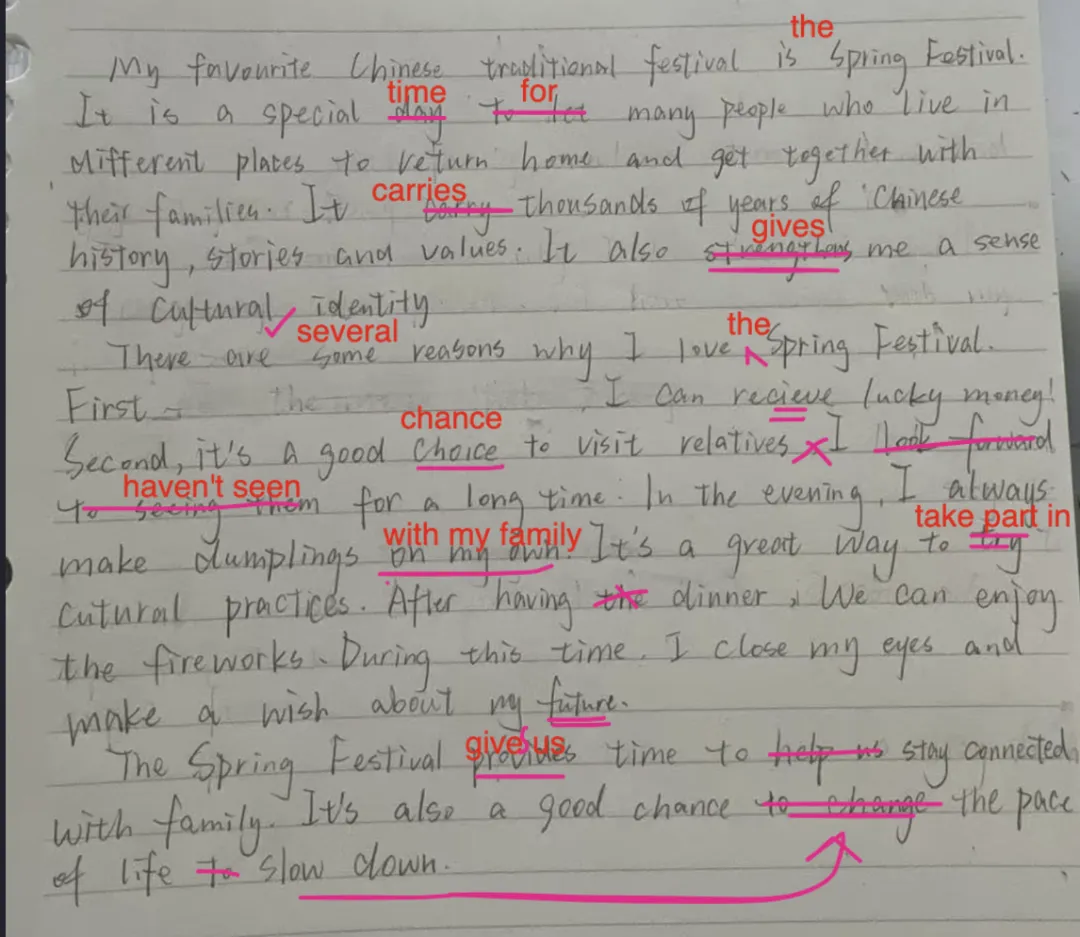 the
My favourite Chinese traditional festival is Spring Festival.
time for
It is a special day to let many people who live in
different places to return home and get together with
carries
their families. It carry thousands of years of Chinese
gives
history, stories and values. It also strengthens me a sense
of Cultural identity
several the
There are some reasons why I love Spring Festival.
First I can recieve lucky money!
chance
Second, it's a good choice to visit relatives I look forward
haven't seen
to seeing them for a long time. In the evening, I always
with my family take part in
make dumplings on my own. It's a great way to try
Cutural practices. After having the dinner, We can enjoy
the fireworks. During this time. I close my eyes and
make a wish about my future.
give us
The Spring Festival provides time to help us stay connected
with family. It's also a good chance to change the pace
of life to slow down.